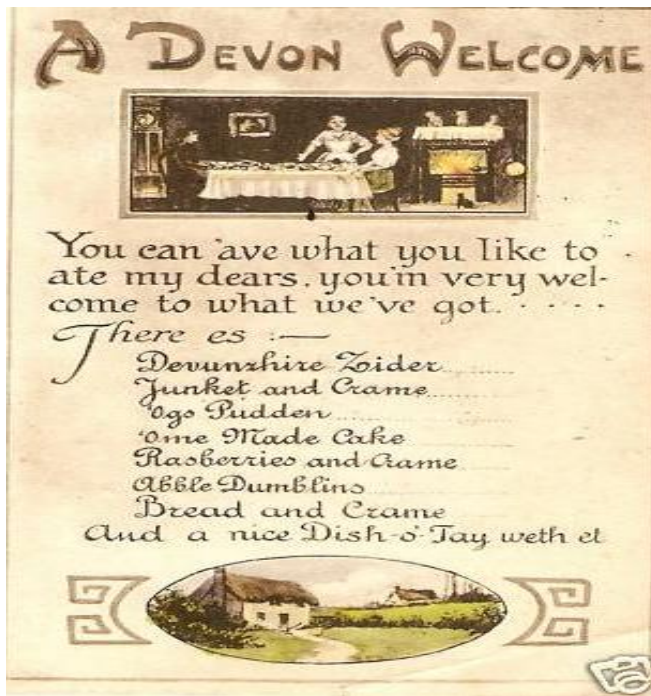 A DEVON WELCOME
You can 'ave what you like to
ate my dears. you'm very wel-
come to what we've got. . . . .
There es :—
Devunzhire Zider
Junket and Crame
'Ogs Pudden
'ome Made Cake
Rasberries and Crame
Abble Dumblins
Bread and Crame
And a nice Dish-o' Tay weth et